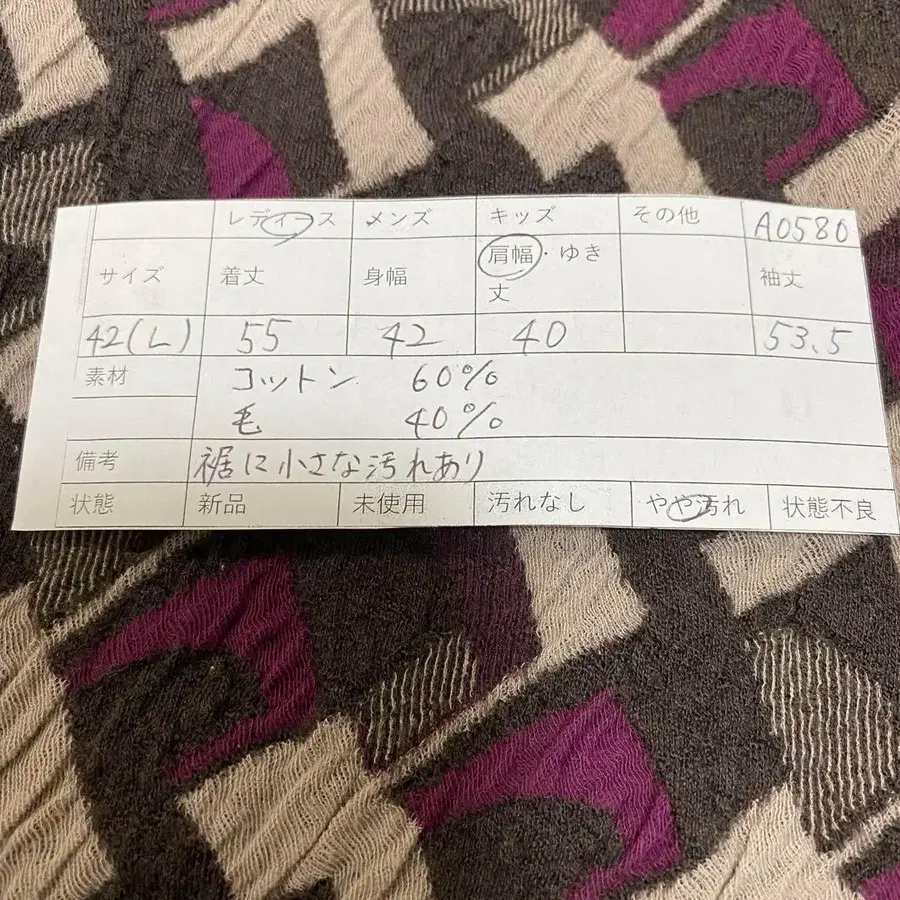 レディース メンズ キッズ その他 A0580
サイズ 着丈 身幅 肩幅・ゆき丈 袖丈
42(L) 55 42 40 53.5
素材 コットン 60%
毛 40%
備考 裾に小さな汚れあり
状態 新品 未使用 汚れなし やや汚れ 状態不良